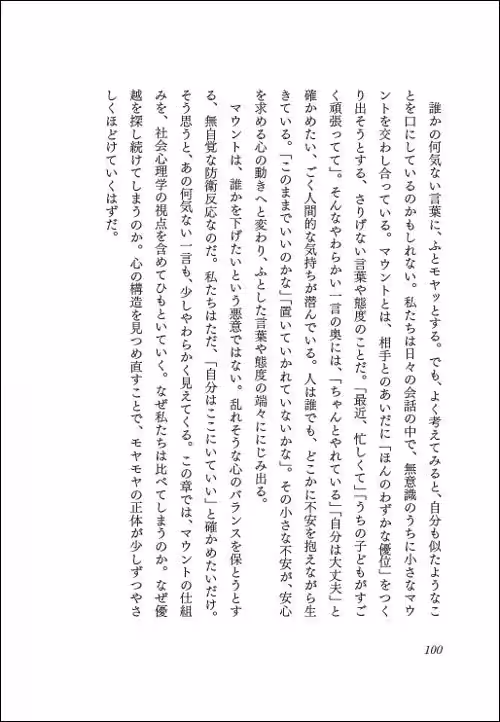 誰かの何気ない言葉に、ふとモヤッとする。でも、よく考えてみると、自分も似たようなこ
とを口にしているのかもしれない。私たちは日々の会話の中で、無意識のうちに小さなマウ
ントを交わし合っている。マウントとは、相手とのあいだに「ほんのわずかな優位」をつく
り出そうとする、さりげない言葉や態度のことだ。「最近、忙しくて」「うちの子どもがすご
く頑張ってて」。そんなやわらかい一言の奥には、「ちゃんとやれている」「自分は大丈夫」と
確かめたい、ごく人間的な気持ちが潜んでいる。人は誰でも、どこかに不安を抱えながら生
きている。「このままでいいのかな」「置いていかれていないかな」。その小さな不安が、安心
を求める心の動きへと変わり、ふとした言葉や態度の端々ににじみ出る。
　マウントは、誰かを下げたいという悪意ではない。乱れそうな心のバランスを保とうとす
る、無自覚な防衛反応なのだ。私たちはただ、「自分はここにいていい」と確かめたいだけ。
そう思うと、あの何気ない一言も、少しやわらかく見えてくる。この章では、マウントの仕組
みを、社会心理学の視点を含めてひもといていく。なぜ私たちは比べてしまうのか。なぜ優
越を探し続けてしまうのか。心の構造を見つめ直すことで、モヤモヤの正体が少しずつやさ
しくほどけていくはずだ。
100